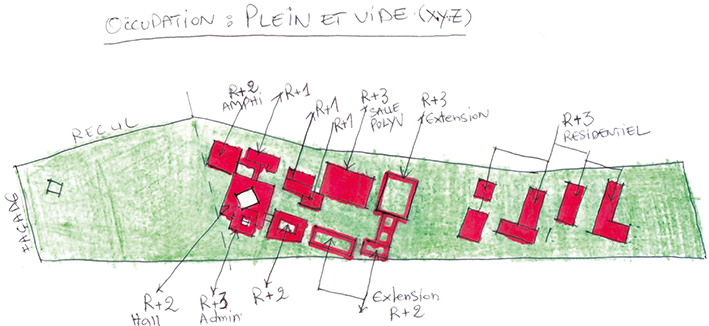 OCCUPATION : PLEIN ET VIDE.(X.Y.Z)
R+2
AMPHI
R+1
R+1
R+1
R+3
SALLE
POLYV
R+3
Extension
R+3
RESIDENTIEL
RECUL
FAÇADE
R+2
Hall
R+3
Admin
R+2
Extension
R+2